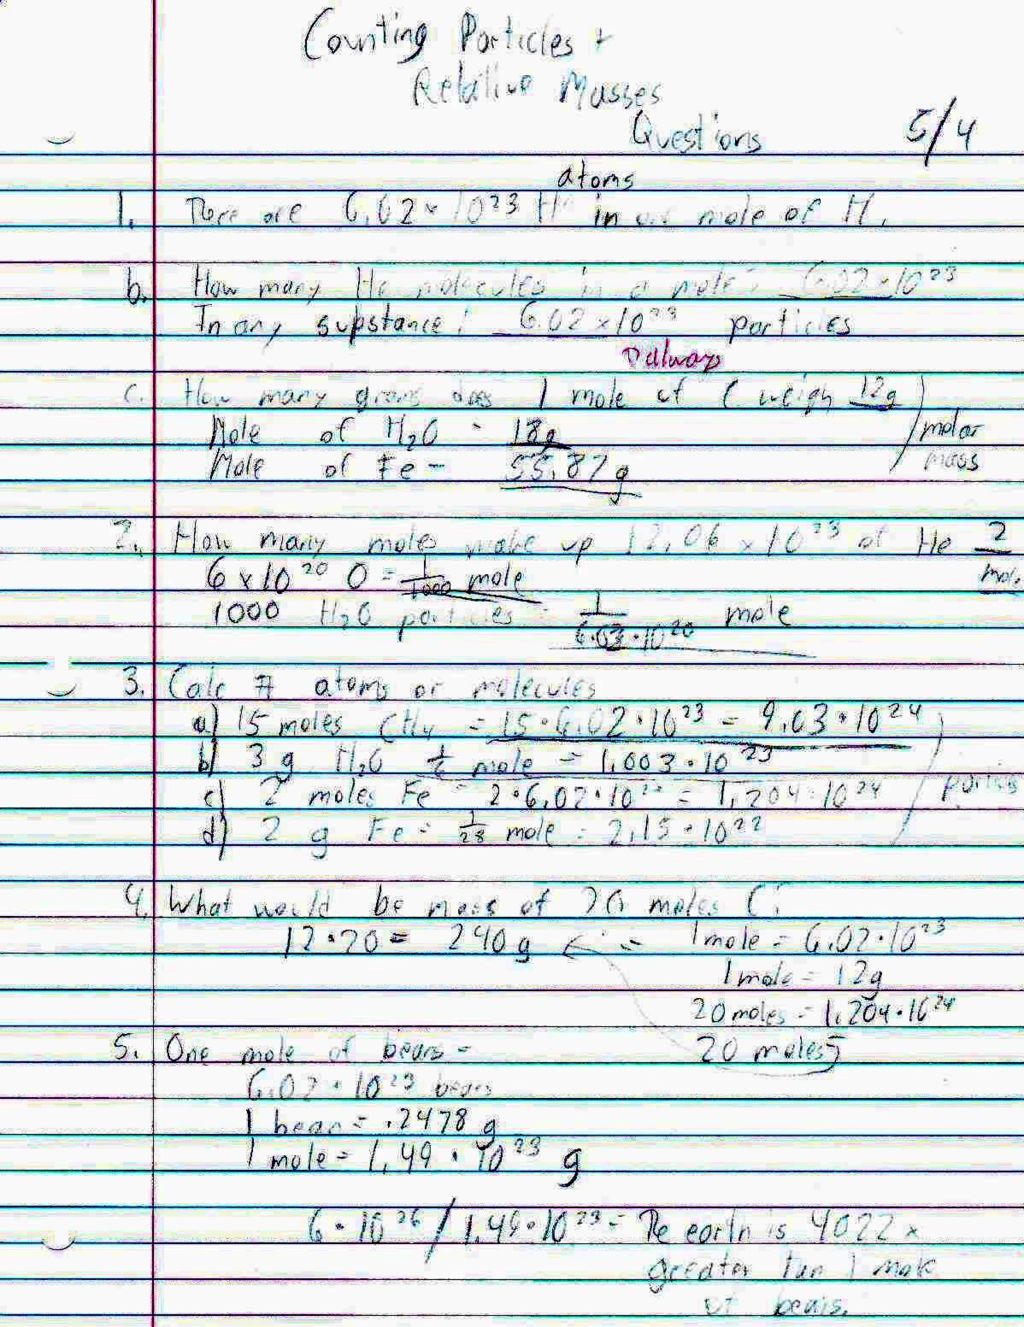 Counting Particles +
Relative Masses
Questions 5/4
atoms
1. There are 6.02 × 10^23 H in one mole of H.
b. How many He molecules in a mole? 6.02 × 10^23
In any substance? 6.02 × 10^23 particles
c. How many grams does 1 mole of C weigh 12g
Mole of H2O - 18g
molar
Mole of Fe - 55.87g
mass
2. How many moles make up 12.06 × 10^23 of He 2
6 × 10^20 O = 1/1000 mole
mole
1000 H2O particles = 1/6.03·10^20 mole
3. Calc # atoms or molecules
a) 15 moles CH4 = 15·6.02·10^23 = 9.03·10^24
b) 3 g H2O 1/6 mole = 1.003·10^23
c) 2 moles Fe = 2·6.02·10^23 = 1.204·10^24
d) 2 g Fe = 1/28 mole = 2.15·10^22
4. What would be mass of 20 moles C?
12·20 = 240 g ← = 1 mole = 6.02·10^23
1 mole = 12g
20 moles = 1.204·10^24
20 moles
5. One mole of beans =
6.02·10^23 beans
1 bean = .2478 g
1 mole = 1.49·10^23 g
6·10^26 / 1.49·10^23 = The earth is 4022 ×
greater than 1 mole
of beans.